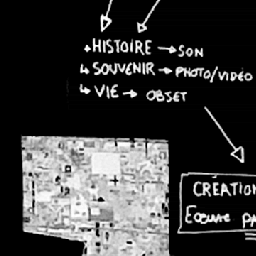 ↳ HISTOIRE → SON
↳ SOUVENIR → PHOTO/VIDÉO
↳ VIE → OBJET
CRÉATION
Œuvre